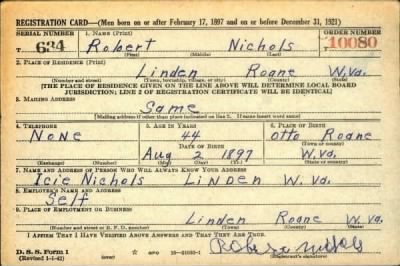 REGISTRATION CARD—(Men born on or after February 17, 1897 and on or before December 31, 1921)
SERIAL NUMBER 1. NAME (Print) ORDER NUMBER
634 Robert Nichols 10080
2. PLACE OF RESIDENCE (Print)
Linden Roane W.Va.
(Number and street) (Town, township, village, or city) (County) (State)
[THE PLACE OF RESIDENCE GIVEN ON THE LINE ABOVE WILL DETERMINE LOCAL BOARD
JURISDICTION; LINE 2 OF REGISTRATION CERTIFICATE WILL BE IDENTICAL]
3. MAILING ADDRESS
Same
[Mailing address if other than place indicated on line 2. If same insert word same]
4. TELEPHONE 5. AGE IN YEARS 6. PLACE OF BIRTH
None 44 Otto Roane
DATE OF BIRTH (Town or county)
Aug 2 1897 W.Va.
(Exchange) (Number) (Mo.) (Day) (Yr.) (State or country)
7. NAME AND ADDRESS OF PERSON WHO WILL ALWAYS KNOW YOUR ADDRESS
Icie Nichols Linden W.Va.
8. EMPLOYER'S NAME AND ADDRESS
Self
9. PLACE OF EMPLOYMENT OR BUSINESS
Linden Roane W.Va.
(Number and street or R. F. D. number) (Town) (County) (State)
I AFFIRM THAT I HAVE VERIFIED ABOVE ANSWERS AND THAT THEY ARE TRUE.
D. S. S. Form 1 GPO
(Revised 1-1-42) Robert Nichols